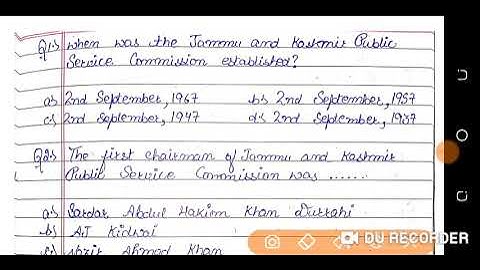 Q1.) When was the Jammu and Kashmir Public
Service Commission established?
a) 2nd September, 1967 b) 2nd September, 1957
c) 2nd September, 1947 d) 2nd September, 1937
Q2) The first chairman of Jammu and Kashmir
Public Service Commission was ......
a) Sardar Abdul Hakim Khan Durrahi
b) AJ Kidwai
Ahmad Khan
DU RECORDER